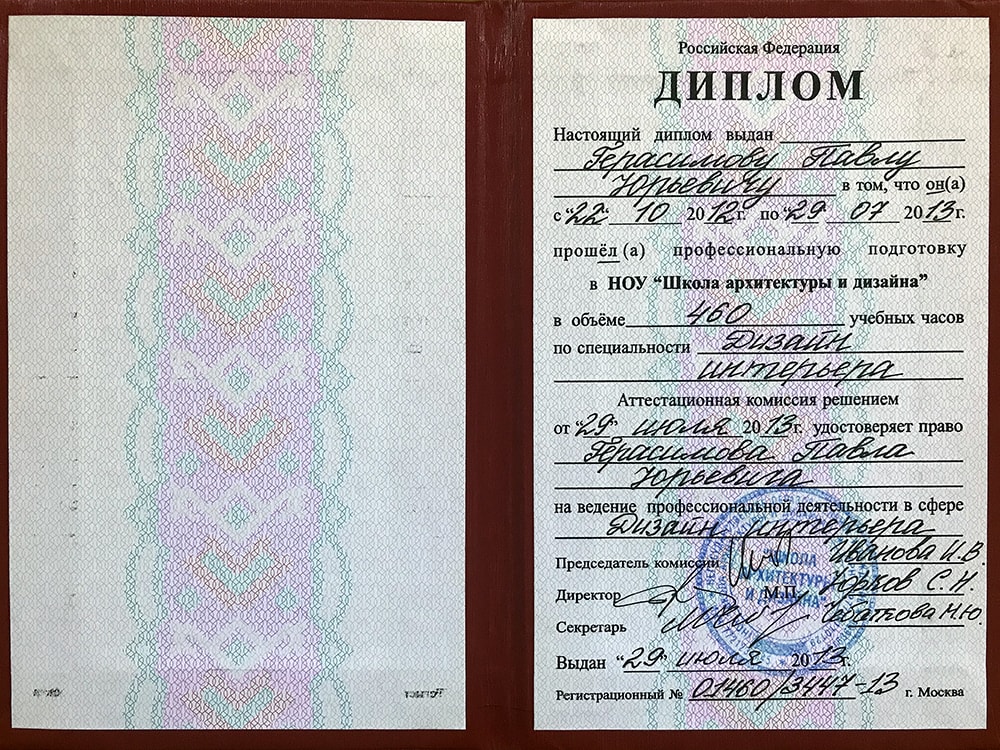 Российская Федерация
ДИПЛОМ
Настоящий диплом выдан
Герасимову Павлу
Юрьевичу в том, что он(а)
с "22" 10 2012г. по "29" 07 2013г.
прошёл (а) профессиональную подготовку
в НОУ "Школа архитектуры и дизайна"
в объёме 460 учебных часов
по специальности Дизайн
интерьера
Аттестационная комиссия решением
от "29" июля 2013г. удостоверяет право
Герасимова Павла
Юрьевича
на ведение профессиональной деятельности в сфере
Дизайн интерьера
Председатель комиссии Иванова И.В.
Директор М.П. Юрков С.Н.
Секретарь Чебаткова Н.Ю.
"ШКОЛА
АРХИТЕКТУРЫ
И ДИЗАЙНА"
Выдан "29" июля 2013г.
Регистрационный № 01460/3447-13 г. Москва